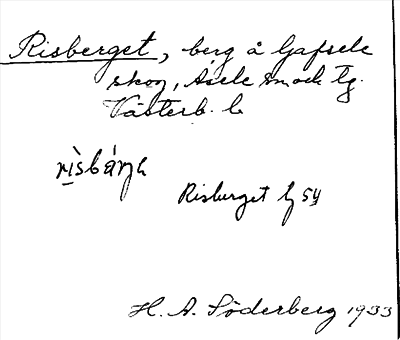 Risberget, berg å Gafsele
skog, Åsele sn och tg.
Västerb. l.
rìsbárja
Risberget
H. A. Söderberg 1933